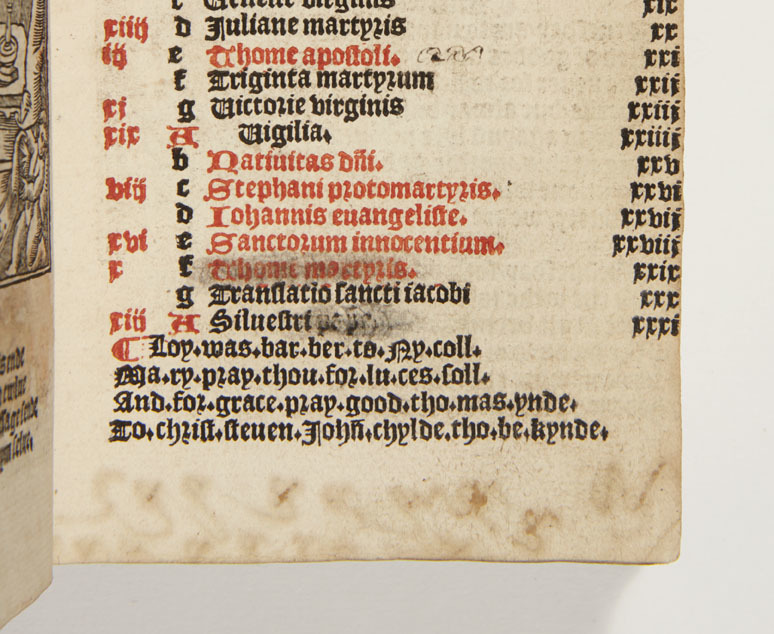 virginis xix
xiiij d Juliane martyris xx
iij e Thome apostoli. xxi
f Triginta martyrum xxij
xi g Uictorie virginis xxiij
xix A Uigilia. xxiiij
b Natiuitas dñi. xxv
viij c Stephani protomartyris. xxvi
d Iohannis euangeliste. xxvij
xvi e Sanctorum innocentium. xxviij
x f Thome martyris. xxix
g Translatio sancti iacobi xxx
xiij A Siluestri xxxi
¶ Loy.was.bar.ber.to.Ny.coll.
Ma.ry.pray.thou.for.lu.ces.soll.
And.for.grace.pray.good.tho.mas.ynde.
To.christ.steuen.Johñ.chylde.tho.be.kynde.